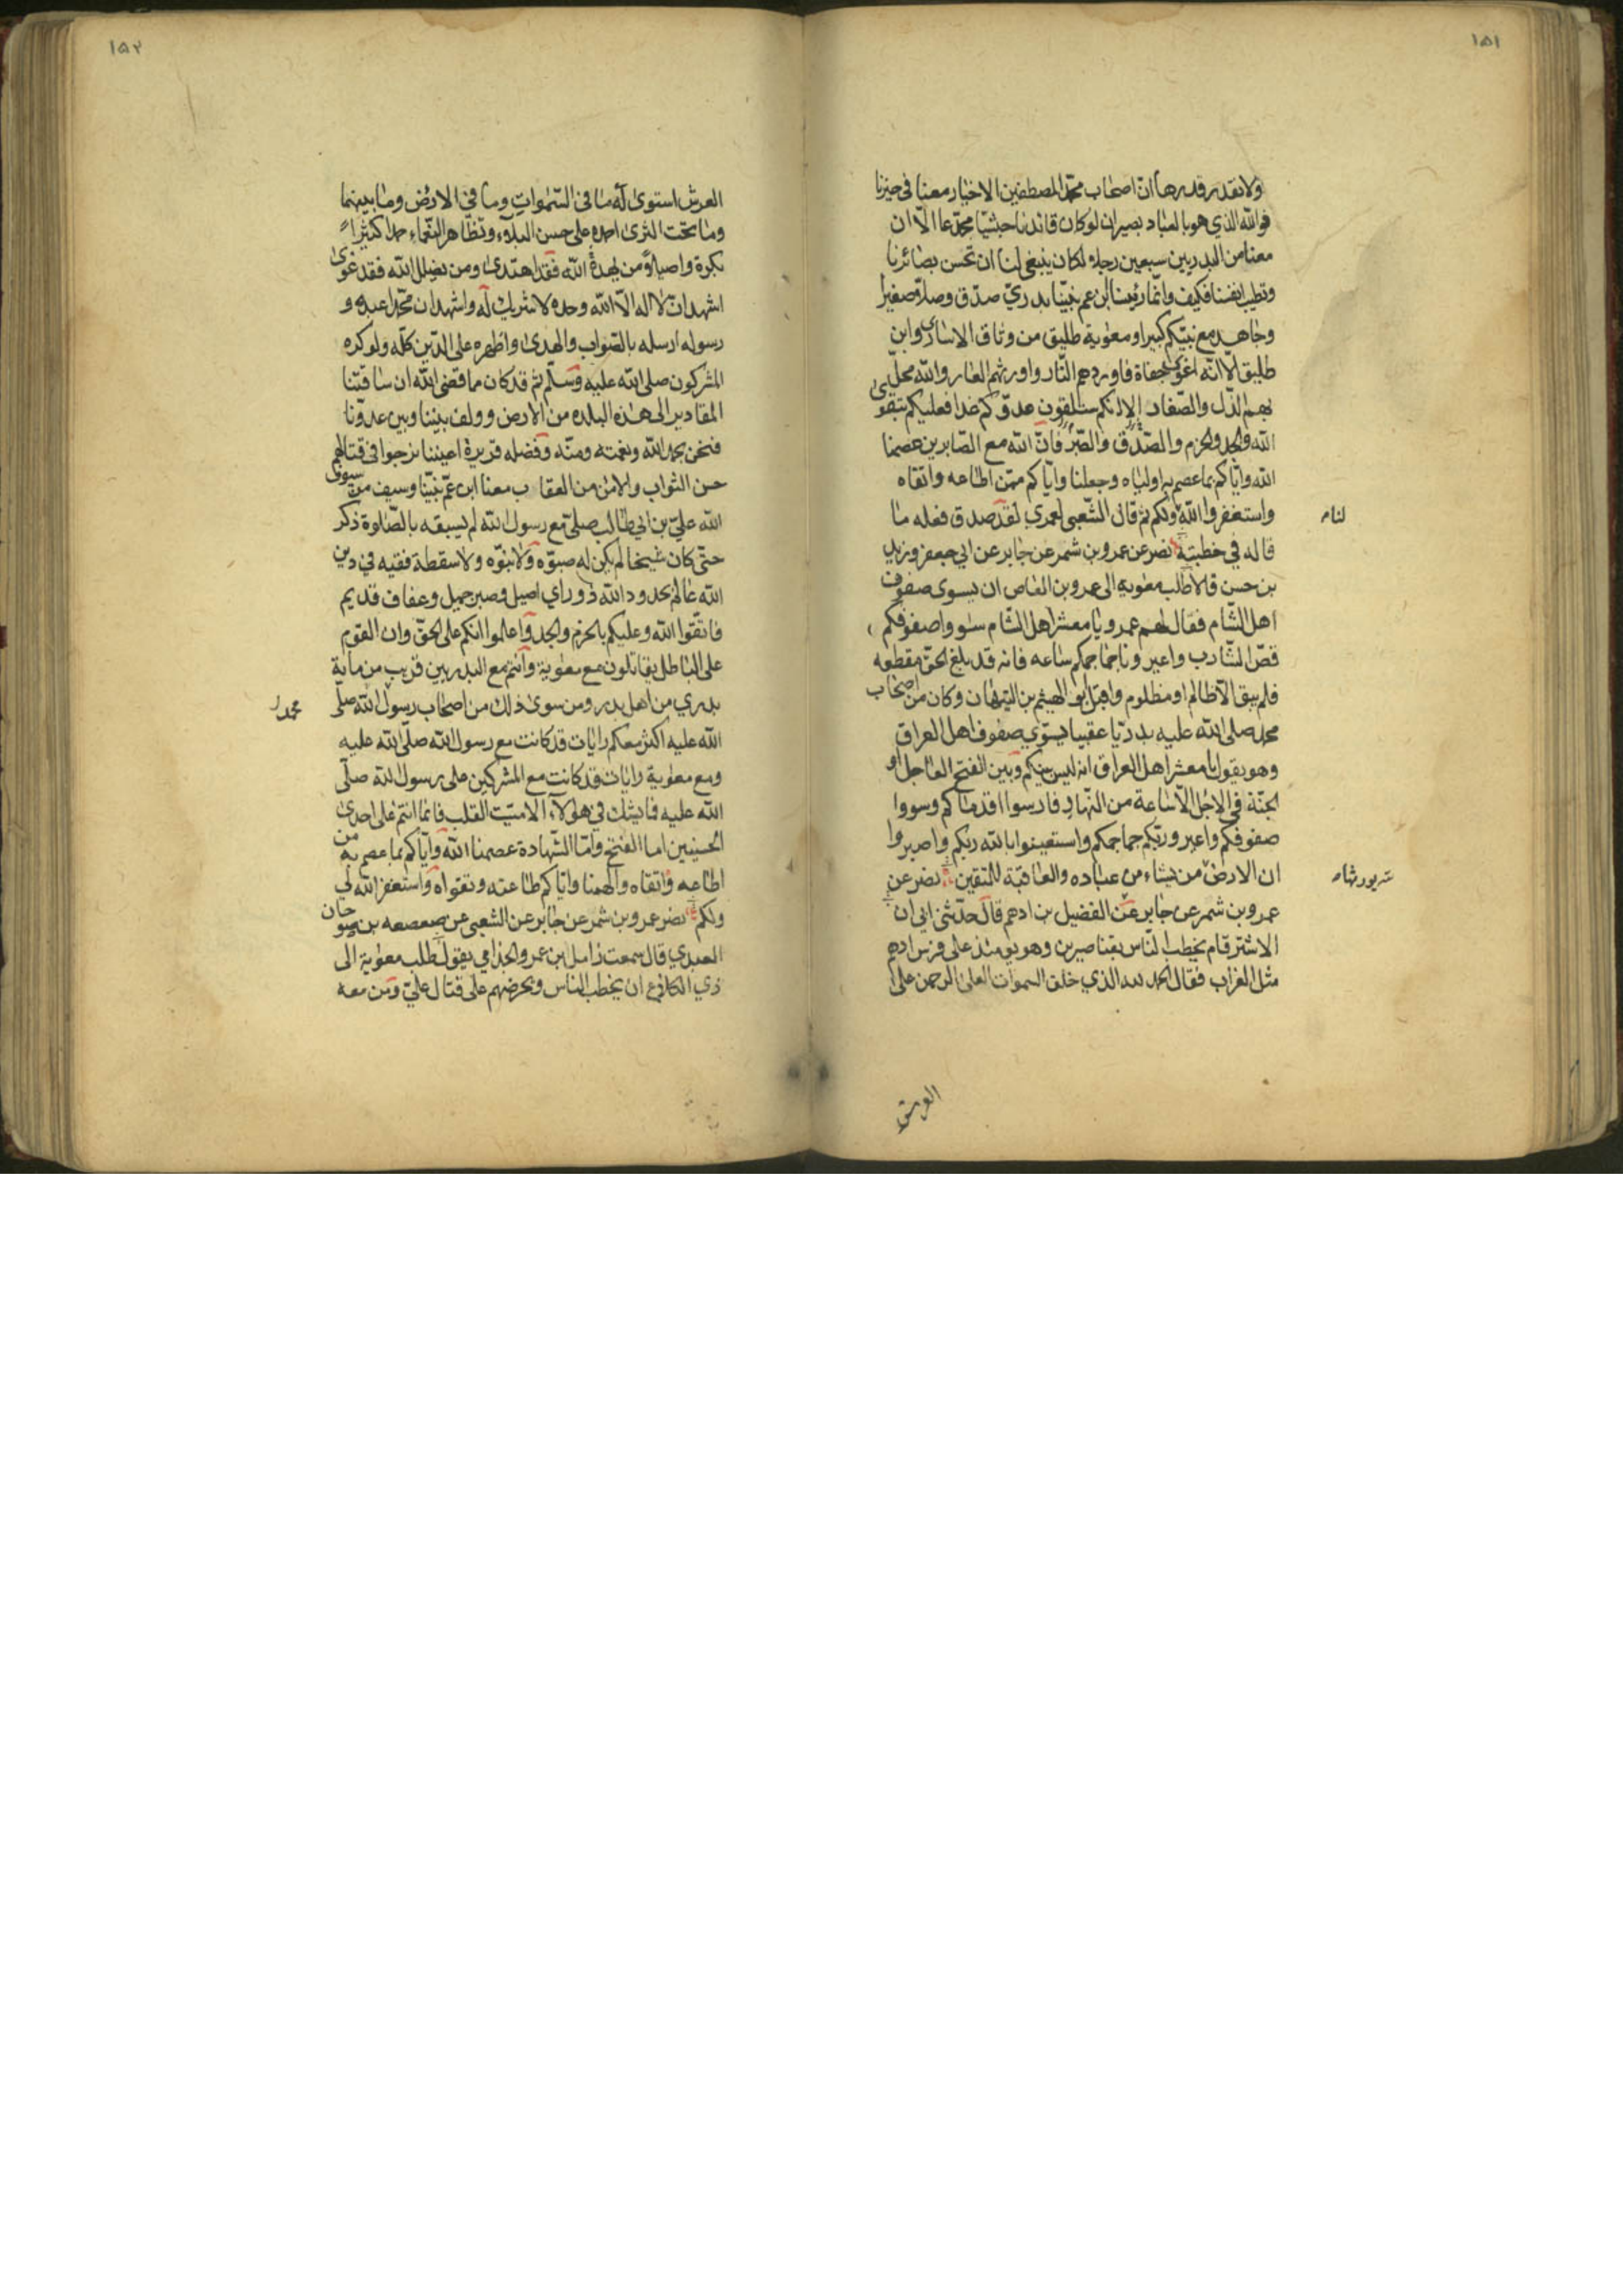 ١٥١
ولا نقدر قدرها ان اصحاب محمد المصطفين الاخيار معنا في حيزنا
فوالله الذي هو بالعباد بصير ان لو كان قائدنا حبشيا مجدعا الا ان
معنا من البدريين سبعين رجلا لكان ينبغي لنا ان تحسن بصائرنا
وتطيب انفسنا فكيف وانما رئيسنا ابن عم نبينا بدري صدق وصلى صغيرا
وجاهد مع نبيكم كبيرا ومعوية طليق من وثاق الاسارى وابن
طليق الا انه اغوى جفاة فاوردهم النار واورثهم العار والله محل
بهم الذل والصغار الا انكم ستلقون عدوكم غدا فعليكم بتقوى
الله والجد والحزم والصدق والصبر فان الله مع الصابرين عصمنا
الله واياكم بما عصم به اولياه وجعلنا واياكم ممن اطاعه واتقاه
واستغفر الله ولكم ثم قال الشعبي لعمري لقد صدق فعله ما
لنام
قاله في خطبته نصر عن عمرو بن شمر عن جابر عن ابي جعفر وزيد
بن حسن قالا طلب معوية الى عمرو بن العاص ان يسوى صفوف
اهل الشام فقال لهم عمرو يا معشر اهل الشام سووا صفوفكم
قص الشارب واعيرونا جماجمكم ساعه فانه قد بلغ الحق مقطعه
فلم يبق الا ظالم او مظلوم واقبل ابو الهيثم بن التيهان وكان من اصحاب
محمد صلى الله عليه بدريا عقبيا يسوي صفوف اهل العراق
وهو يقول يا معشر اهل العراق انه ليس بينكم وبين الفتح العاجل او
الجنة في الاجل الا ساعة من النهار فارسوا اقدامكم وسووا
صفوفكم واعيروا ربكم جماجمكم واستعينوا بالله ربكم واصبروا
ان الارض من يشاء من عباده والعاقبة للمتقين نصر عن
عمرو بن شمر عن جابر عن الفضيل بن ادهم قال حدثني ابي ان
الاشتر قام يخطب الناس بقناصرين وهو يومئذ على فرس ادهم
مثل الغراب فقال الحمد لله الذي خلق السموات العلى الرحمن على
العرش
١٥٢
العرش استوى له ما في السموات وما في الارض وما بينهما
وما تحت الثرى احمده على حسن البلاء وتظاهر النعماء حمدا كثيرا
بكرة واصيلا من يهده الله فقد اهتدى ومن يضلل الله فقد غوى
اشهد ان لا اله الا الله وحده لا شريك له واشهد ان محمدا عبده و
رسوله ارسله بالصواب والهدى واظهره على الدين كله ولو كره
المشركون صلى الله عليه وسلم ثم قد كان مما قضى الله ان ساقتنا
المقادير الى هذه البلده من الارض وولف بيننا وبين عدونا
فنحن بحمد الله ونعمته ومنه وفضله قريرة اعيننا نرجوا في قتالهم
حسن الثواب والامن من العقاب معنا ابن عم نبينا وسيف من سيوف
الله علي بن ابي طالب صلى مع رسول الله لم يسبقه بالصلوة ذكر
حتى كان شيخا لم يكن له صبوة ولا نبوة ولا سقطة فقيه في دين
الله عالم بحدود الله ذو راي اصيل وصبر جميل وعفاف قديم
فاتقوا الله وعليكم بالحزم والجد واعلموا انكم على الحق وان القوم
على الباطل يقاتلون مع معوية وانتم مع البدريين قريب من ماية
بدري من اهل بدر ومن سوى ذلك من اصحاب رسول الله صلى
محمد
الله عليه اكثر معكم رايات قد كانت مع رسول الله صلى الله عليه
ومع معوية رايات قد كانت مع المشركين على رسول الله صلى
الله عليه فما يشك في هؤلاء الا ميت القلب فانما انتم على احدى
الحسنيين اما الفتح واما الشهادة عصمنا الله واياكم بما عصم به من
اطاعه واتقاه والهمنا واياكم طاعته وتقواه واستغفر الله لي
ولكم نصر عمرو بن شمر عن جابر عن الشعبي عن صعصعه بن صوحان
العبدي قال سمعت زامل بن عمرو الجذامي يقول طلب معوية الى
ذي الكلاع ان يخطب الناس ويحرضهم على قتال علي ومن معه